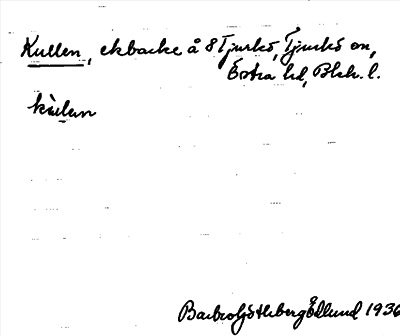 Kullen, ekbacke å S Tjurkö, Tjurkö sn,
Östra hd, Blek. l.
kùlən
Barbro Söderberg Edlund 1936